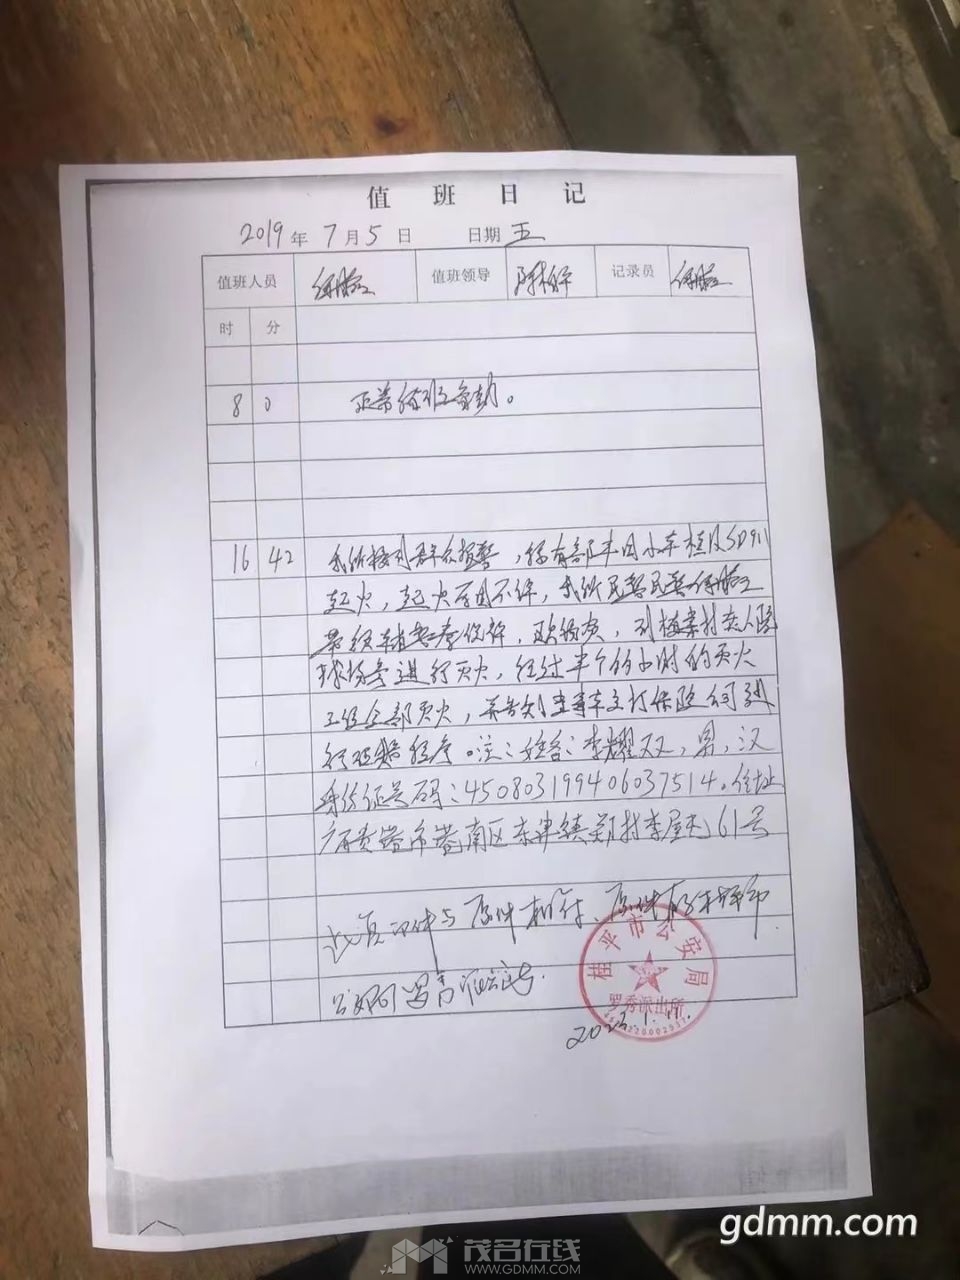 值班日记
2019年7月5日 日期 五
值班人员 值班领导 记录员
时 分
8 0 正常值班备勤。
16 42 我所接到群众报警,称有部丰田小车桂RSD911
起火,起火原因不详,我所民警
进行灭火,经过半个的小时的灭火
工作全部灭火,并告知当事车主打保险公司进
行理赔程序。注:姓名:李耀双,男,汉
身份证号码:450803199406037514。住址
广西贵港市港南区东津镇郑村李屋屯61号
此复印件与原件相符、原件存于桂平市
公安局罗秀派出所.
桂平市公安局
罗秀派出所
2023.1.11.
gdmm.com
茂名在线
WWW.GDMM.COM